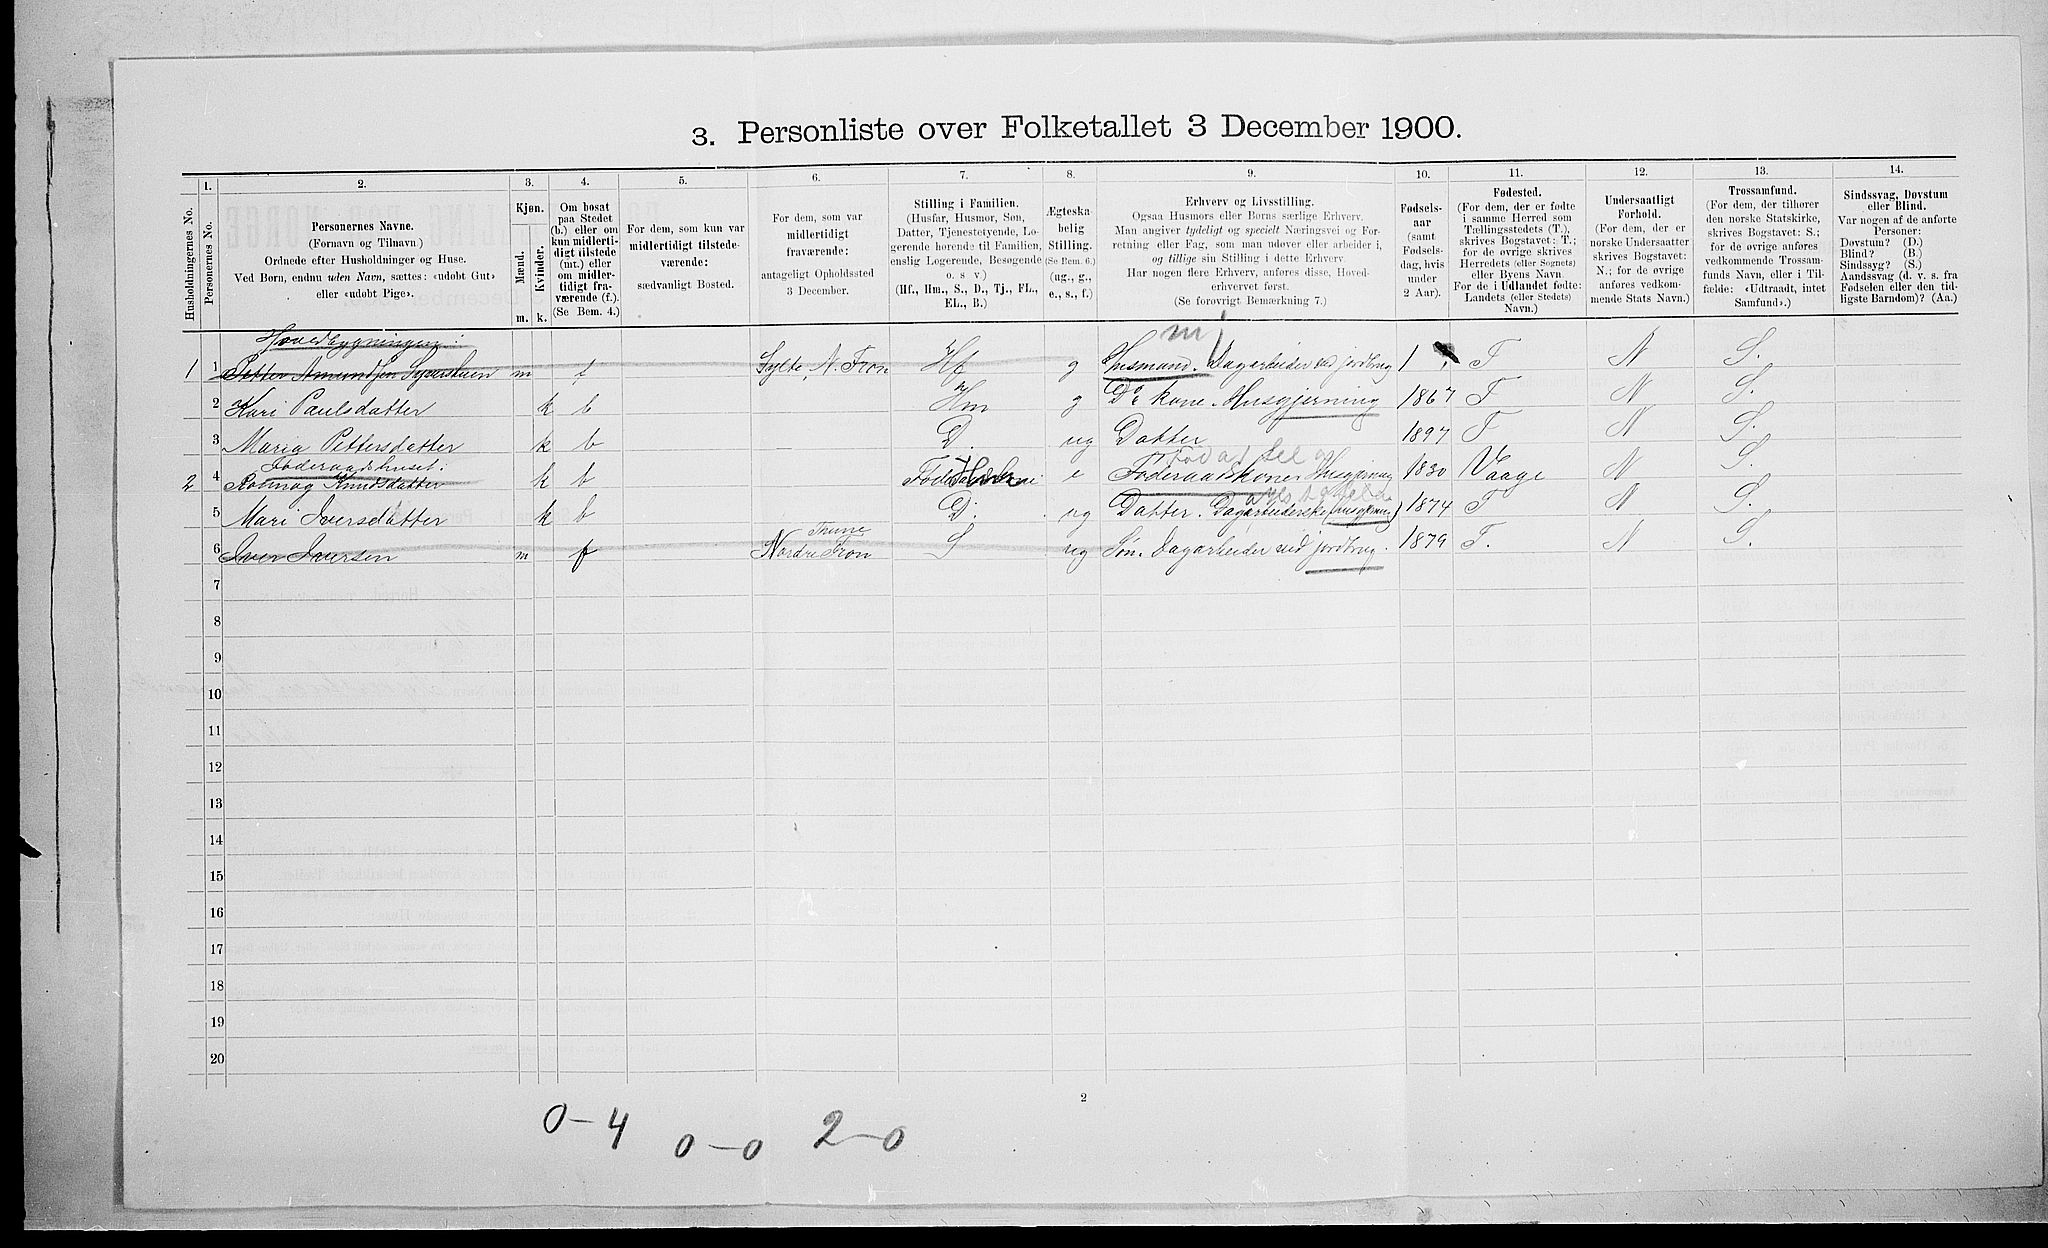 3. Personliste over Folketallet 3 December 1900.
Husholdningernes No.
1.
Personernes No.
2.
Personernes Navne.
(Fornavn og Tilnavn.)
Ordnede efter Husholdninger og Huse.
Ved Børn, endnu uden Navn, sættes: «udøbt Gut»
eller «udøbt Pige».
3.
Kjøn.
Mænd.
Kvinder.
m. k.
4.
Om bosat
paa Stedet
(b.) eller om
kun midlerti-
digt tilstede
(mt.) eller
om midler-
tidigt fra-
værende (f.).
(Se Bem. 4.)
5.
For dem, som kun var
midlertidigt tilstede-
værende:
sædvanligt Bosted.
6.
For dem, som var
midlertidigt
fraværende:
antageligt Opholdssted
3 December.
7.
Stilling i Familien.
(Husfar, Husmor, Søn,
Datter, Tjenestetyende, Lo-
gerende hørende til Familien,
enslig Logerende, Besøgende
o. s v.)
(Hf., Hm., S., D., Tj., FL.,
EL., B.)
8.
Ægteska-
belig
Stilling.
(Se Bem. 6.)
(ug., g.,
e., s., f.)
9.
Erhverv og Livsstilling.
Ogsaa Husmors eller Børns særlige Erhverv.
Man angiver tydeligt og specielt Næringsvei og For-
retning eller Fag, som man udøver eller arbeider i,
og tillige sin Stilling i dette Erhverv.
Har nogen flere Erhverv, anføres disse, Hoved-
erhvervet først.
(Se forøvrigt Bemærkning 7.)
10.
Fødsels-
aar
(samt
Fødsels-
dag, hvis
under
2 Aar).
11.
Fødested.
(For dem, der er fødte
i samme Herred som
Tællingsstedets (T.),
skrives Bogstavet: T.;
for de øvrige skrives
Herredets (eller Sognets)
eller Byens Navn.
For de i Udlandet fødte:
Landets (eller Stedets)
Navn.)
12.
Undersaatligt
Forhold.
(For dem, der er
norske Undersaatter
skrives Bogstavet:
N.; for de øvrige
anføres vedkom-
mende Stats Navn.)
13.
Trossamfund.
(For dem, der tilhører
den norske Statskirke,
skrives Bogstavet: S.;
for de øvrige anføres
vedkommende Trossam-
funds Navn, eller i Til-
fælde: «Udtraadt, intet
Samfund».)
14.
Sindssvag, Døvstum
eller Blind.
Var nogen af de anførte
Personer:
Døvstum? (D.)
Blind? (B.)
Sindssyg? (S.)
Aandssvag (d. v. s. fra
Fødselen eller den tid-
ligste Barndom)? (Aa.)
Hovedbygningen:
1 1 Petter Amundsen m f Sylte, N. Fron Hf g Husmand. Dagarbeider ved jordbrug 1 T N S.
2 Kari Paulsdatter k b Hm g Do kone. Husgjerning 1867 T N S.
3 Maria Pettersdatter k b D. ug Datter 1897 T N S.
Føderaadshuset:
2 4 Rønnog Knudsdatter k b e Føderaadskone. Husgjerning 1830 Vaage N S.
5 Mari Iversdatter k b D. ug Datter. Dagarbeiderske (husgjerning) 1874 T N S.
6 Iver Iversen m f Thune Nordre Fron S ug Søn. Dagarbeider ved jordbrug. 1879 T. N S.
7
8
9
10
11
12
13
14
15
16
17
18
19
20
2
0-4 0-0 2-0